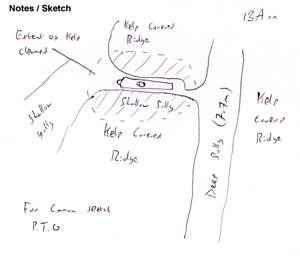 Notes / Sketch
13A
Extent of Kelp
Cleared
Kelp Covered
Ridge
Shallow
Gully
Shallow Gully
Kelp Covered
Ridge
Deep Gully (7.7m)
Kelp
Covered
Ridge
For Camera sketch
P.T.O